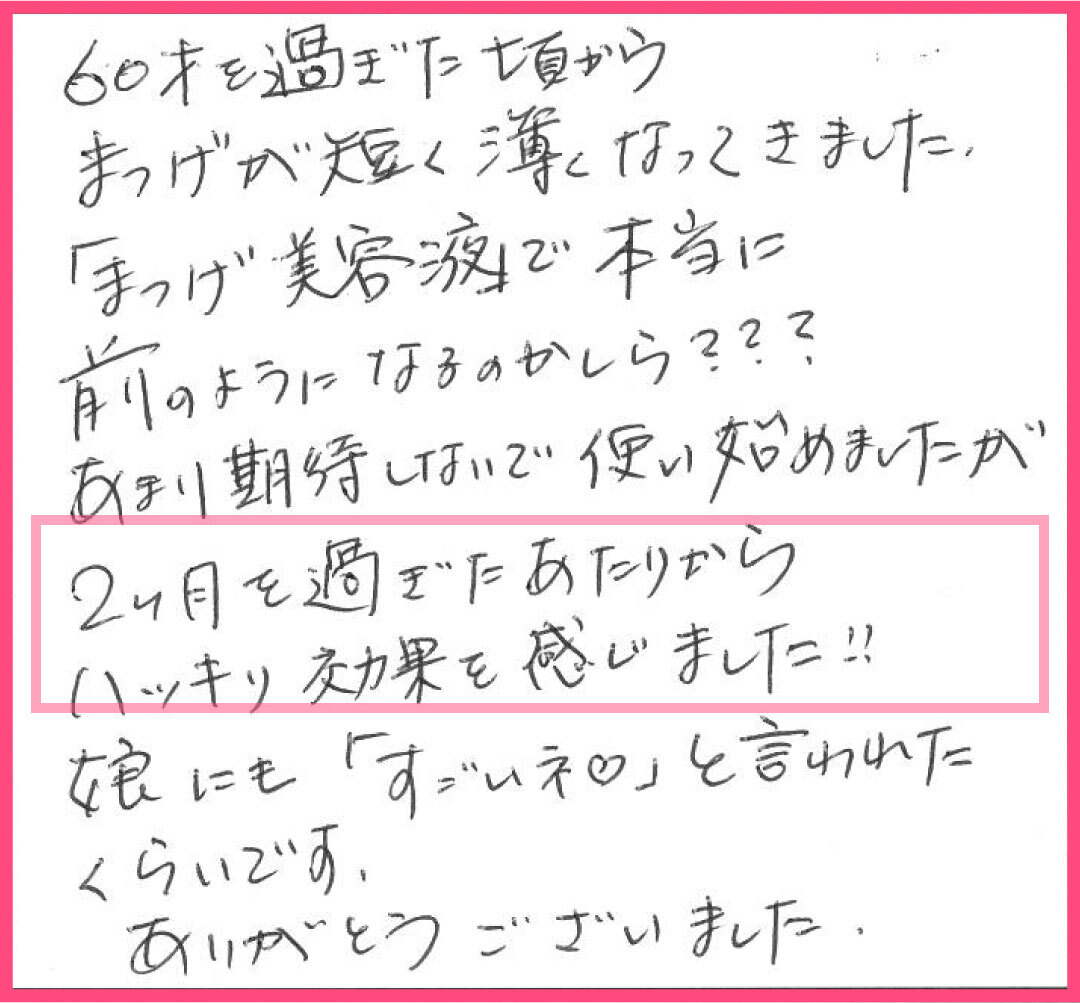 60才を過ぎた頃から
まつげが短く薄くなってきました.
「まつげ美容液」で本当に
前のようになるのかしら???
あまり期待しないで使い始めましたが
2ヶ月を過ぎたあたりから
ハッキリ効果を感じました!!
娘にも「すごいネ♡」と言われた
くらいです.
ありがとうございました.